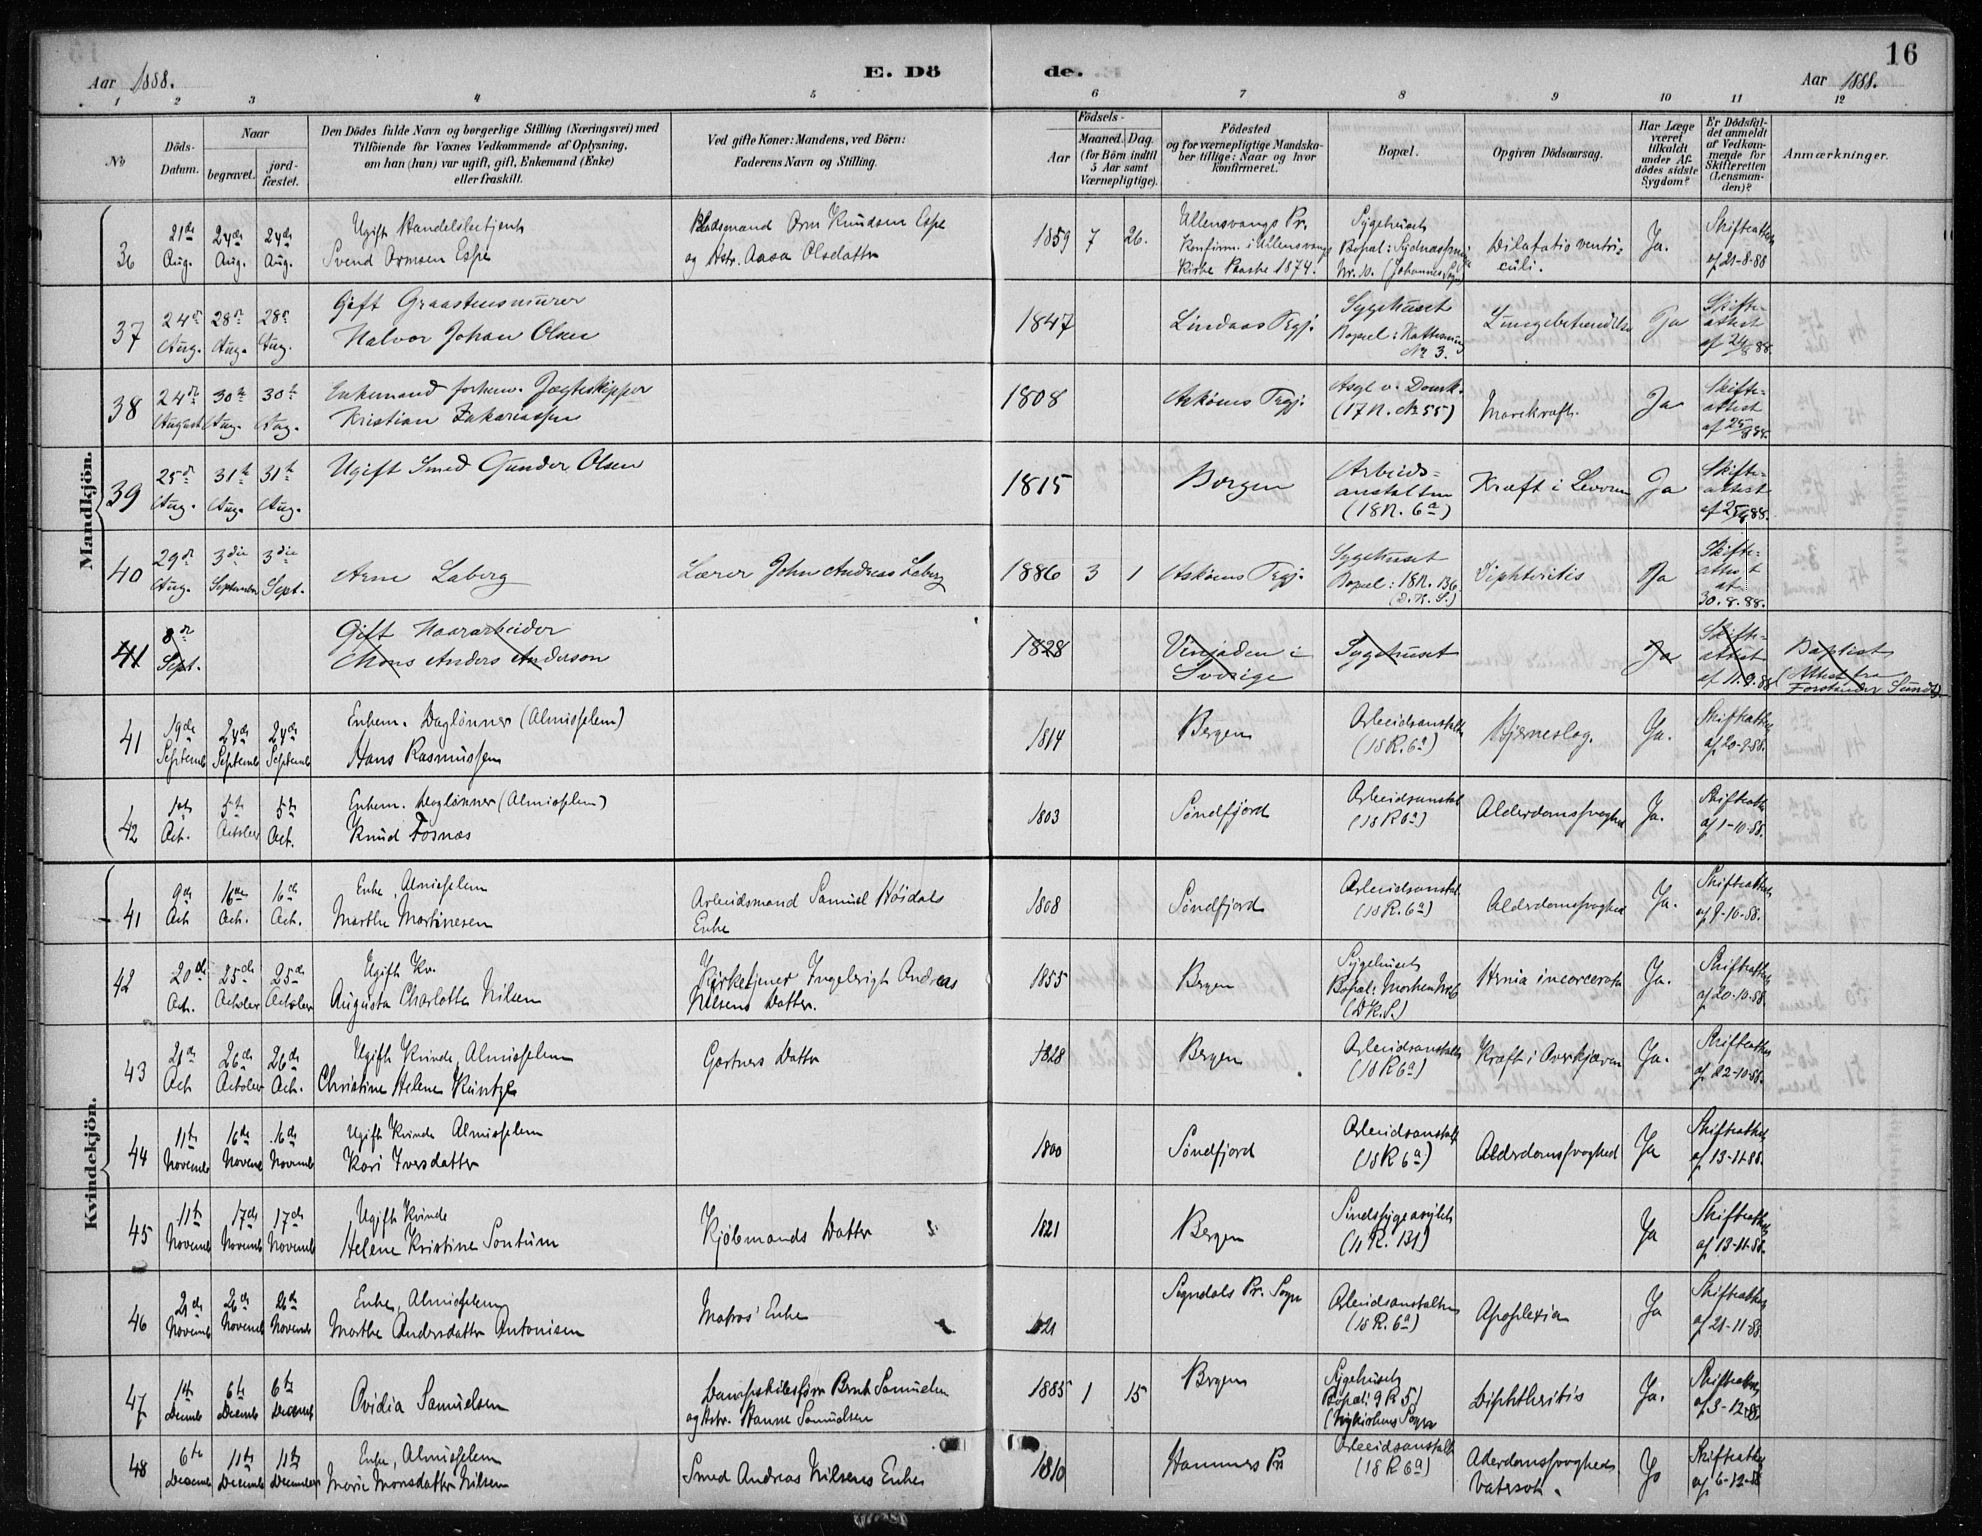 16
Aar 1888.
E. Dö
de.
Aar 1888.
1 2 3 4 5 6 7 8 9 10 11 12
No
Döds-
Datum.
Naar
begravet.
jord-
fæstet.
Den Dödes fulde Navn og borgerlige Stilling (Næringsvei) med
Tilföiende for Voxnes Vedkommende af Oplysning,
om han (hun) var ugift, gift, Enkemand (Enke)
eller fraskilt.
Ved gifte Koner: Mandens, ved Börn:
Faderens Navn og Stilling.
Födsels-
Aar
Maaned. Dag.
(for Börn indtil
5 Aar samt
Værnepligtige).
Födested
og for værnepligtige Mandska-
ber tillige: Naar og hvor
konfirmeret.
Bopæl.
Opgiven Dödsaarsag.
Har Læge
været
tilkaldt
under Af-
dödes sidste
Sygdom?
Er Dödsfal-
det anmeldt
af Vedkom-
mende for
Skifteretten
(Lensman-
den)?
Anmærkninger.
Mandkjön.
36
21de Aug.
24de Aug.
24de Aug.
Ugift Handelsbetjent
Svend Ormsen Espe
Pladsmand Orm Knudsen Espe
og Hstr. Aasa Olsdatter
1859 7 26.
Ullensvangs Pr.
Konfirm. i Ullensvangs
Kirke Paaske 1874.
Sygehuset
Nr. 10.
Dilatatio ventri-
culi.
Ja.
Skifteattest
af 21-8-88
37
24de Aug.
28de Aug.
28de Aug.
Gift Graastensmurer
Halvor Johan Olsen
1847
Lindaas Prgj.
Sygehuset
No 3.
Lungebetændelse
Ja
Skifte-
attest
af 24/8 88.
38
24de August
30te Aug.
30te Aug.
Enkemand forhenv. Jægteskipper
Kristian Zakariassen
1808
Askøens Prgj.
(17 R. No 55)
Marekraft.
Ja
Skifte-
attest
39
25de Aug.
31te Aug.
31te Aug.
Ugift Smed Gunder Olsen
1815
Bergen
Arbeids-
anstalten
(18 R. 6a)
Kræft i Leveren
Ja
Skifte-
attest
40
29de Aug.
3die September
3die Sept.
Arne Laberg
Lærer John Andreas Laberg
1886 3 1
Askøens Prgj.
Sygehuset
Bopæl: 18 R. 136
(D. K. S.)
Diphteritis
Ja
Skifte-
attest
30.8.88.
41
8de Sept.
Gift Haararbeider
Mons Anders Anderson
1828
Sverige
Sygehuset
Ja
Skifte-
attest
af 11.9.88
Baptist
(Attest fra
Forstander Sundt)
41
19de Septemb
24de Septemb
24de Septemb
Enkem. Daglønner (Almisselem)
Hans Rasmussen
1814
Bergen
Arbeidsanstalten
(18 R. 6a)
Hjerneslag.
Ja.
Skifteattest
af 20-9-88.
42
1ste Oct.
5te October
5te Oct.
Enkem. Daglønner (Almisselem)
Knud Fosnæs
1803
Søndfjord
Arbeidsanstalt
(18 R 6a)
Alderdomssvaghed
Ja.
Skifteattest
af 1-10-88.
Kvindekjön.
41
9de Oct
16de Oct.
16de Oct.
Enke, Almisselem
Marthe Martinesen
Arbeidsmand Samuel Høidals
Enke
1808
Søndfjord
Arbeidsanstalt
(18 R. 6a)
Alderdomssvaghed
Ja.
Skifteattest
af 9-10-88.
42
20de Oct.
25de October
25de October
Ugift Kv.
Augusta Charlotte Nilsen
Kirketjener Ingebrigt Andreas
Nilsens Datter.
1855
Bergen
Sygehuset
(D K. S.)
Hernia incarcerata
Ja.
Skifteattest
af 20-10-88.
43
21de Oct
26de October
26de Oct.
Ugift Kvinde, Almisselem
Christine Helene Küntze
Gartners Datter
1828
Bergen
Arbeidsanstalten
(18 R 6a)
Kræft i Overkjæven
Ja.
Skifteattest
af 22-10-88.
44
11te Novemb
16de Novemb
16de Novemb
Ugift Kvinde Almisselem
Kari Iversdatter
1800
Søndfjord
Arbeidsanstalt
(18 R 6a)
Alderdomssvaghed
Ja
Skifteattest
af 13-11-88.
45
11te Novemb
17de Novemb
17de Novemb
Ugift Kvinde
Helene Kristine Sontum
Kjøbmands Datter
1821
Bergen
Sindssygeasylet
(11 R. 131)
Ja
Skifteattest
af 13-11-88.
46
21de Novemb
26de Novemb
26de Novemb
Enke, Almisselem
Marthe Andersdatter Antonisen
Matros' Enke
1821
Sogndals Pr. Sogn
Arbeidsanstalten
(18 R. 6a)
Apoplexia
Ja
Skifteattest
af 21-11-88.
47
1ste Decemb
6te Decemb
6te Decemb
Ovidia Samuelsen
Dampskibsfører Bernt Samuelsen
og Hstr. Hanne Samuelsen
1885 1 15
Bergen
Sygehuset
Bopæl: 9 R 5)
(Nykirkens Sogn
Diphtheritis
Ja.
Skifteattest
af 3-12-88.
48
6te Decemb
11te Decemb
11te December
Enke, Almisselem
Marie Monsdatter Nilsen
Smed Andreas Nilsens Enke
1810
Hammers Pr
Arbeidsanstalt
(18 R 6a)
Alderdomssvagheds
Vatersot.
Ja
Skifteattest
af 6-12-88